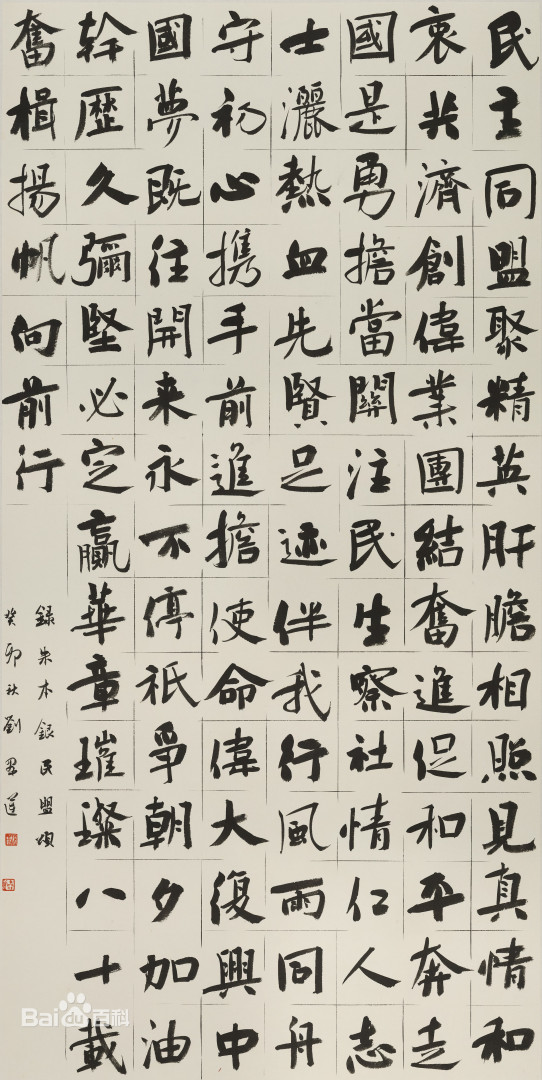 民主同盟聚精英肝膽相照見真情和
衷共濟創偉業團結奮進促和平奔走
國是勇擔當關注民生察社情仁人志
士灑熱血先賢足迹伴我行風雨同舟
守初心携手前進擔使命偉大復興中
國夢既往開来永不停祇爭朝夕加油
幹歷久彌堅必定贏華章璀璨八十載
奮楫揚帆向前行
録朱本銀民盟頌
癸卯秋劉
Baidu百科